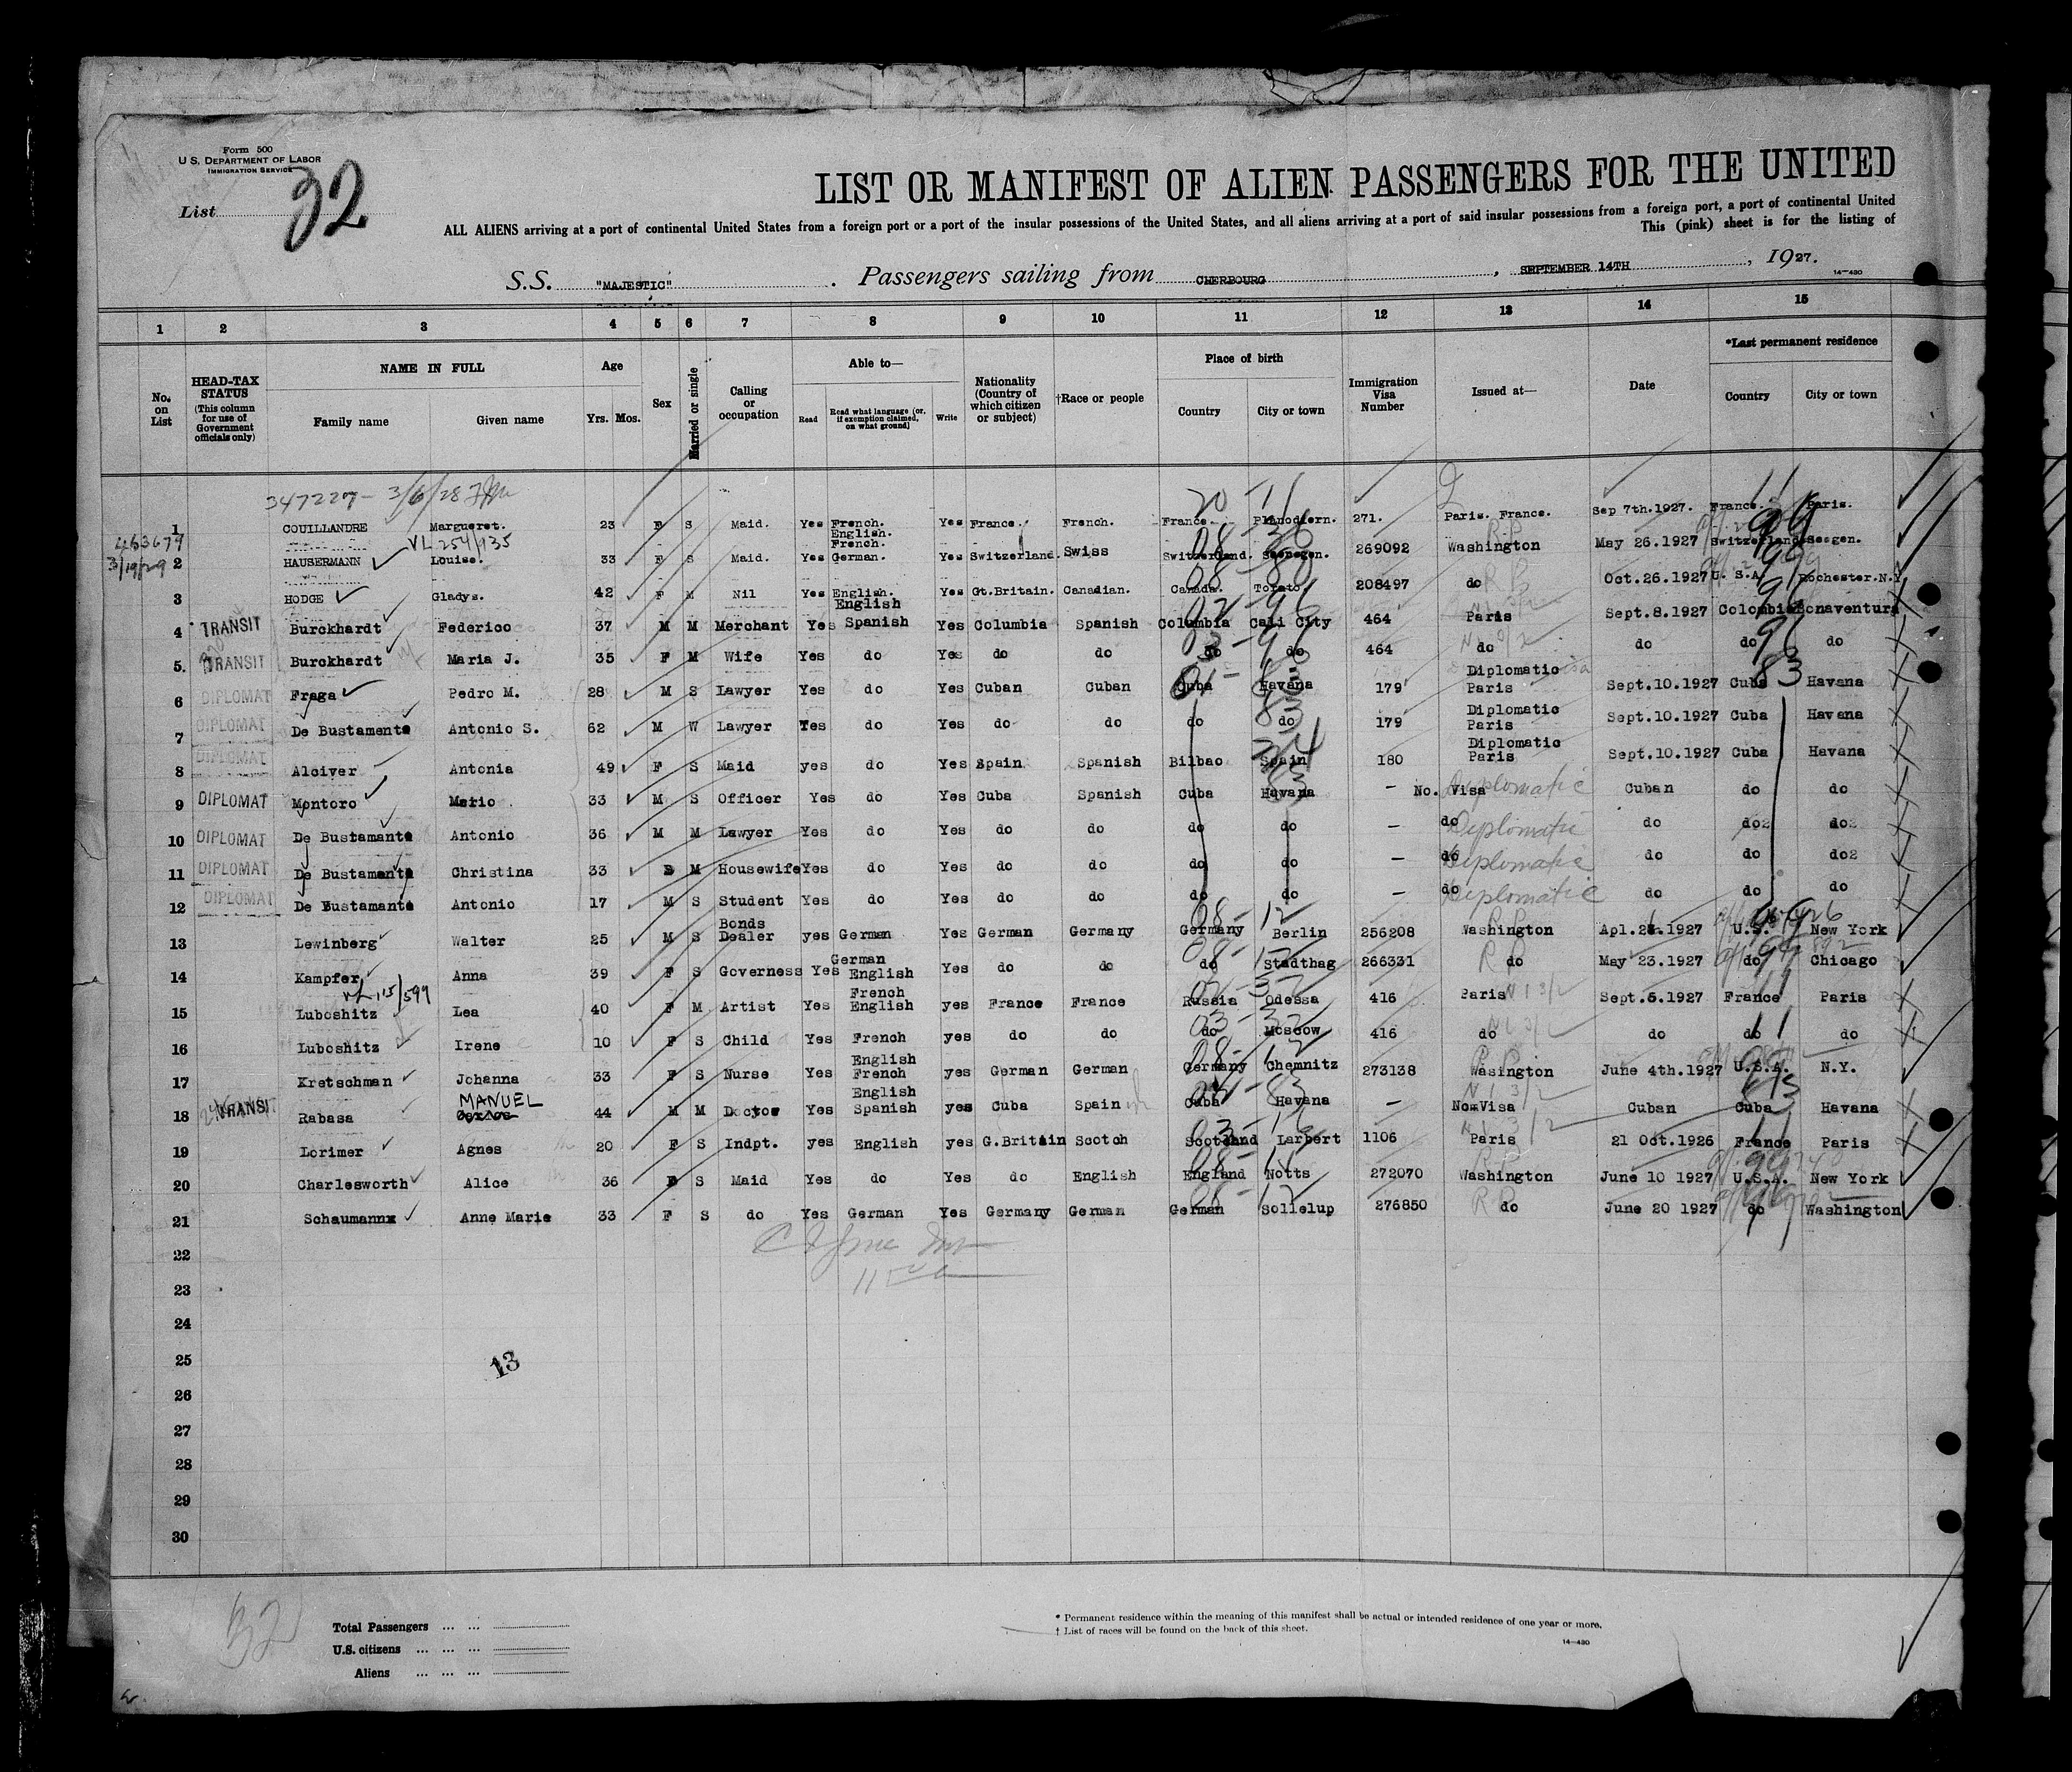 Form 500
U.S. DEPARTMENT OF LABOR
IMMIGRATION SERVICE
List 32
LIST OR MANIFEST OF ALIEN PASSENGERS FOR THE UNITED
ALL ALIENS arriving at a port of continental United States from a foreign port or a port of the insular possessions of the United States, and all aliens arriving at a port of said insular possessions from a foreign port, a port of continental United
This (pink) sheet is for the listing of
S.S. "MAJESTIC" . Passengers sailing from CHERBOURG , SEPTEMBER 14TH , 1927.
14-430
1 2 3 4 5 6 7 8 9 10 11 12 13 14 15
No. on List
HEAD-TAX STATUS (This column for use of Government officials only)
NAME IN FULL Family name Given name
Age Yrs. Mos.
Sex
Married or single
Calling or occupation
Able to— Read Read what language (or, if exemption claimed, on what ground) Write
Nationality (Country of which citizen or subject)
†Race or people
Place of birth Country City or town
Immigration Visa Number
Issued at—
Date
*Last permanent residence Country City or town
347227 - 3/6/28
1 COUILLANDRE Margueret. 23 F S Maid. Yes French. English. Yes France. French. France. Planodiern. 271. Paris. France. Sep 7th.1927. France. Paris.
463679 3/19/29 VL 254/135
2 HAUSERMANN Louise. 33 F S Maid. Yes French. German. Yes Switzerland. Swiss Switzerland. Seenegen. 269092 Washington May 26.1927 Switzerland Seegen.
3 HODGE Gladys. 42 F M Nil Yes English. Yes Gt.Britain. Canadian. Canada. Torato. 208497 do Oct.26.1927 U. S.A. Rochester.N.Y
4 TRANSIT Burckhardt Federico 37 M M Merchant Yes English Spanish Yes Columbia Spanish Columbia Cali City 464 Paris Sept.8.1927 Colombia Bonaventura
5. TRANSIT Burckhardt Maria J. 35 F M Wife Yes do Yes do do do do 464 do do do do
6 DIPLOMAT Fraga Pedro M. 28 M S Lawyer Yes do Yes Cuban Cuban Cuba Havana 179 Diplomatic Paris Sept.10.1927 Cuba Havana
7 DIPLOMAT De Bustamente Antonio S. 62 M W Lawyer Yes do Yes do do do do 179 Diplomatic Paris Sept.10.1927 Cuba Havana
8 DIPLOMAT Alciver Antonia 49 F S Maid yes do Yes Spain Spanish Bilbao Spain 180 Diplomatic Paris Sept.10.1927 Cuba Havana
9 DIPLOMAT Montoro Mario 33 M S Officer Yes do Yes Cuba Spanish Cuba Havana - No. Visa Diplomatic Cuban do do
10 DIPLOMAT De Bustamante Antonio 36 M M Lawyer Yes do Yes do do do do - do Diplomatic do do do
11 DIPLOMAT De Bustamante Christina 33 M Housewife Yes do Yes do do do do - do Diplomatic do do do
12 DIPLOMAT De Bustamante Antonio 17 M S Student Yes do Yes do do do do - do Diplomatic do do do
13 Lewinberg Walter 25 M S Bonds Dealer yes German Yes German Germany Germany Berlin 256208 Washington Apl.26.1927 U.S. New York
14 Kampfer Anna 39 F S Governess Yes German English Yes do do do Stadthag 266331 do May 23.1927 do Chicago
15 Luboshitz Lea 40 F M Artist Yes French English yes France France Russia Odessa 416 Paris Sept.5.1927 France Paris
16 Luboshitz Irene 10 F S Child Yes French yes do do do Moscow 416 do do do do
17 Kretschman Johanna 33 F S Nurse Yes English French yes German German Germany Chemnitz 273138 Wasington June 4th.1927 U.S.A. N.Y.
18 TRANSIT Rabasa MANUEL 44 M M Doctor Yes English Spanish yes Cuba Spain Cuba Havana - No Visa Cuban Cuba Havana
19 Lorimer Agnes 20 F S Indpt. yes English yes G.Britain Scotch Scotland Larbert 1106 Paris 21 Oct.1926 France Paris
20 Charlesworth Alice 36 F S Maid Yes do Yes do English England Notts 272070 Washington June 10 1927 U.S.A. New York
21 Schaumannx Anne Marie 33 F S do Yes German Yes Germany German German Sollelup 276850 do June 20 1927 do Washington
22
23
24
25
13
26
27
28
29
30
32
Total Passengers ... ...
U.S. citizens ... ... ...
Aliens ... ... ...
* Permanent residence within the meaning of this manifest shall be actual or intended residence of one year or more.
† List of races will be found on the back of this sheet.
14-430